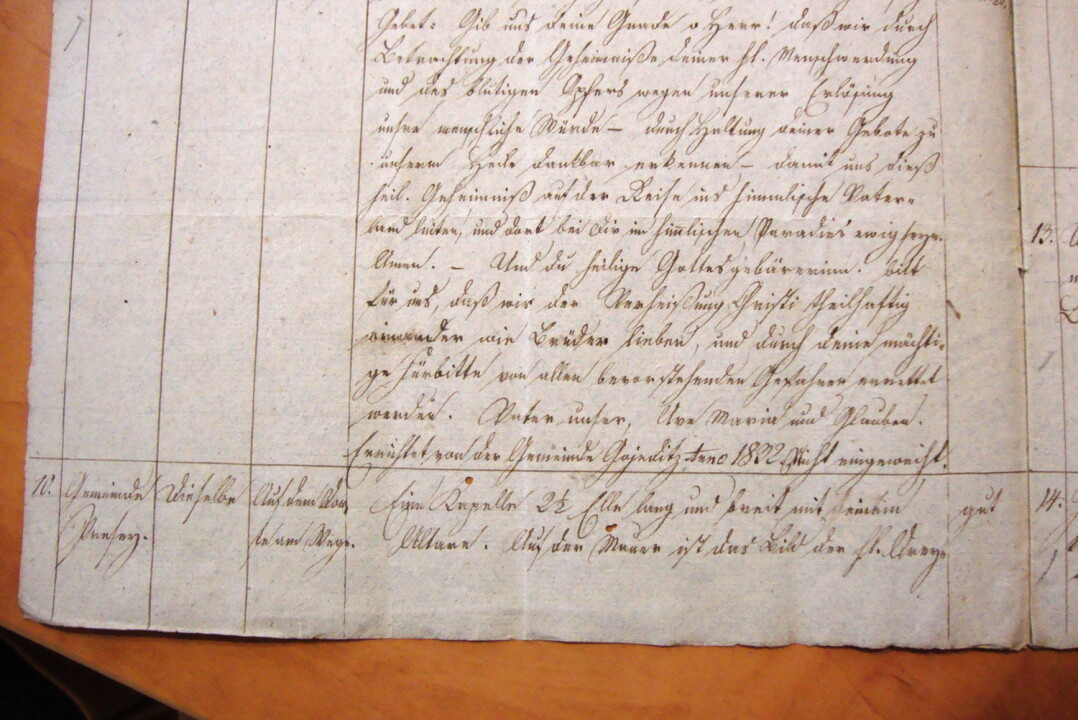 Gebet: Gib uns deine Gnade o Herr! daß wir durch
Betrachtung der Geheimniße deiner hl. Menschwerdung
und des blutigen Opfers wegen unserer Erlösung
unsre menschliche Würde – durch Haltung deiner Gebote zu
unserm Heile dankbar erkennen – damit uns dieß
heil. Geheimniß auf der Reise ins himmlische Vater-
land leiten, und dort bei dir im himlischen Paradies ewig seyn.
Amen. – Und du heilige Gottesgebärerinn. bitt
für uns, daß wir der Verheißung Christi theilhaftig
einander wie Brüder lieben, und durch deine mächti-
ge Fürbitte von allen bevorstehenden Gefahren errettet
werden. Vater unser, Ave Maria und Glauben.
Errichtet von der Gemeinde Gojeditz Anno 1832. Nicht eingeweiht.
10. Gemeinde dieselbe Auf dem Dor- Eine Kapelle 2½ Elle lang und breit mit einem gut
fe am Wege. Altare. Auf der Mauer ist das Bild der hl. Drey-
13.
14.